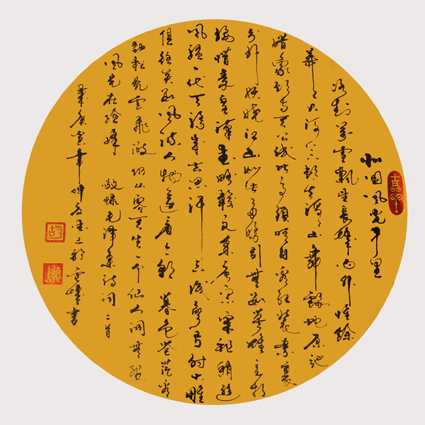 北国风光千里
冰封万里雪飘望长城内外惟馀
莽莽大河上下顿失滔滔山舞银蛇原驰
蜡象欲与天公试比高须晴日看红装素裹
分外妖娆江山如此多娇引无数英雄竞折
腰惜秦皇汉武略输文采唐宗宋祖稍逊
风骚一代天骄成吉思汗只识弯弓射大雕
俱往矣数风流人物还看今朝 暮色苍茫看
劲松乱云飞渡仍从容天生一个仙人洞无限
风光在险峰 敬录毛泽东诗词二首